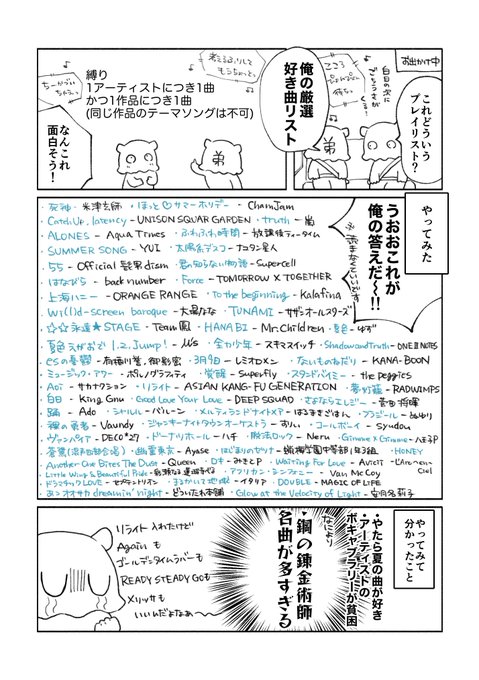 お出かけ中
これどういう
プレイリスト?
俺の厳選
好き曲リスト
縛り
1アーティストにつき1曲
かつ1作品につき1曲
(同じ作品のテーマソングは不可)
なんこれ
面白そう!
やってみた
うおおこれが
俺の答えだ〜!!
・死神 - 米津玄師 ・ほっと♡サマーホリデー - ChamJam
・Catch Up, latency - UNISON SQUAR GARDEN ・truth - 嵐
・ALONES - Aqua Timez ・ふわふわ時間 - 放課後ティータイム
・SUMMER SONG - YUI ・太陽系デスコ - ナユタン星人
・55 - Official髭男dism ・君の知らない物語 - Supercell
・はなびら - back number ・Force - TOMORROW X TOGETHER
・上海ハニー - ORANGE RANGE ・to the beginning - Kalafina
・Wi(l)d-screen baroque - 大場なな ・TUNAMI - サザンオールスターズ
・☆☆永遠★STAGE - Team鳳 ・HANABI - Mr.Children
・夏色 - ゆず
・夏色えがおで1,2,Jump! - μ's ・全力少年 - スキマスイッチ ・Shadow and truth - ONE Ⅲ NOTES
・esの憂鬱 - 有栖川誉、御影密 ・3月9日 - レミオロメン ・ないものねだり - KANA-BOON
・ミュージック・アワー - ポルノグラフィティ ・覚醒 - Superfly ・スタンドバイミー - the peggies
・Aoi - サカナクション ・リライト - ASIAN KANG-FU GENERATION ・夢灯籠 - RADWIMPS
・白日 - King Gnu ・Good Love Your Love - DEEP SQUAD ・さよならエレジー - 菅田将暉
・踊 - Ado ・シャルル - バルーン ・メルティランドナイトメア - はるまきごはん ・アンコール - YOASOBI
・裸の勇者 - Vaundy ・ジャンキーナイトタウンオーケストラ - すりぃ ・コールボーイ - syudou
・ヴァンパイア - DECO*27 ・ドーナツホール - ハチ ・脱法ロック - Neru ・Gimme×Gimme - 八王子P
・幽霊東京 - Ayase
・HONEY - L'Arc〜en〜Ciel
・Another One Bites The Dust - Queen ・ロキ - みきとP ・Waiting For Love - Avicii
・アフリカン・シンフォニー - Van McCoy
・ドラマチックLOVE - ・まるかいて地球 - イタリア ・DOUBLE - MAGIC OF LIFE
・あンオサカ dreamin' night - どついたれ本舗 ・Glow at the Velocity of Light - 安月名莉子
やってみて
分かったこと
・やたら夏の曲が好き
・アーティストの
ボキャブラリーが貧困
なにより
・鋼の錬金術師
名曲が多すぎる
リライト入れたけど
Againも
ゴールデンタイムラバーも
READY STEADY GOも
メリッサも
いいんだよなぁ〜